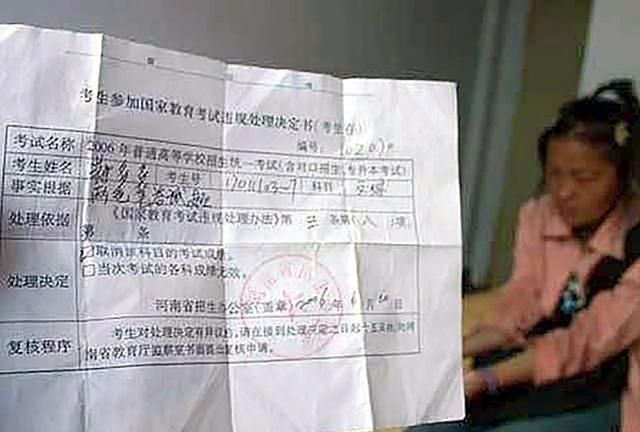 考生参加国家教育考试违规处理决定书(考生存)
编号:
考试名称 2006年普通高等学校招生统一考试(含对口招生、专升本考试)
考生姓名 考生号 科目
事实根据
处理依据 《国家教育考试违规处理办法》第 三 条第(八)项、
第 条
处理决定 取消该科目的考试成绩。
当次考试的各科成绩无效。
河南省招生办公室(盖章) 2006年6月 日
复核程序 考生对处理决定有异议的,请在接到处理决定之日起十五日内,向河
南省教育厅监察室书面提出复核申请。